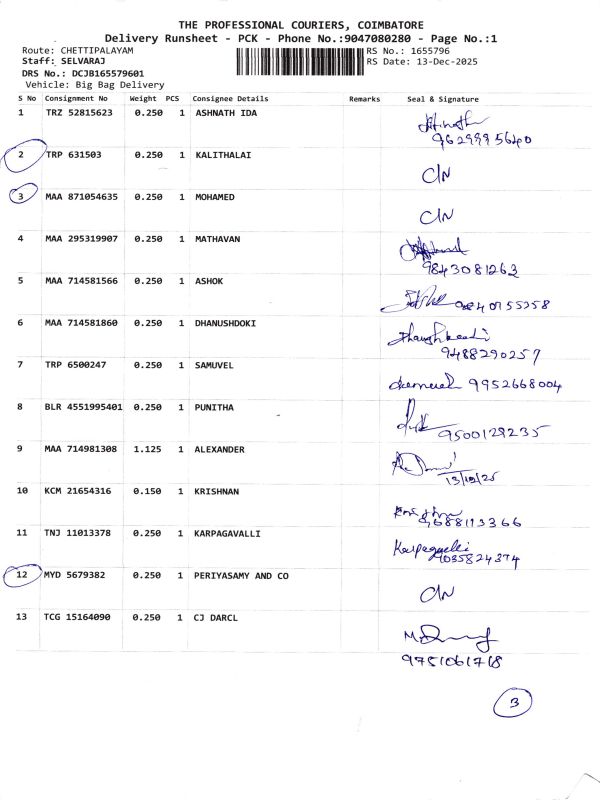 THE PROFESSIONAL COURIERS, COIMBATORE
Delivery Runsheet - PCK - Phone No.:9047080280 - Page No.:1
Route: CHETTIPALAYAM
RS No.: 1655796
Staff: SELVARAJ
RS Date: 13-Dec-2025
DRS No.: DCJB165579601
Vehicle: Big Bag Delivery
S No Consignment No Weight PCS Consignee Details Remarks Seal & Signature
1 TRZ 52815623 0.250 1 ASHNATH IDA
9629995640
2 TRP 631503 0.250 1 KALITHALAI
C/N
3 MAA 871054635 0.250 1 MOHAMED
C/N
4 MAA 295319907 0.250 1 MATHAVAN
9843081263
5 MAA 714581566 0.250 1 ASHOK
9840755258
6 MAA 714581860 0.250 1 DHANUSHDOKI
9488290257
7 TRP 6500247 0.250 1 SAMUVEL
9952668004
8 BLR 4551995401 0.250 1 PUNITHA
9500129235
9 MAA 714981308 1.125 1 ALEXANDER
13/12/25
10 KCM 21654316 0.150 1 KRISHNAN
11 TNJ 11013378 0.250 1 KARPAGAVALLI
12 MYD 5679382 0.250 1 PERIYASAMY AND CO
C/N
13 TCG 15164090 0.250 1 CJ DARCL
9751061718
3